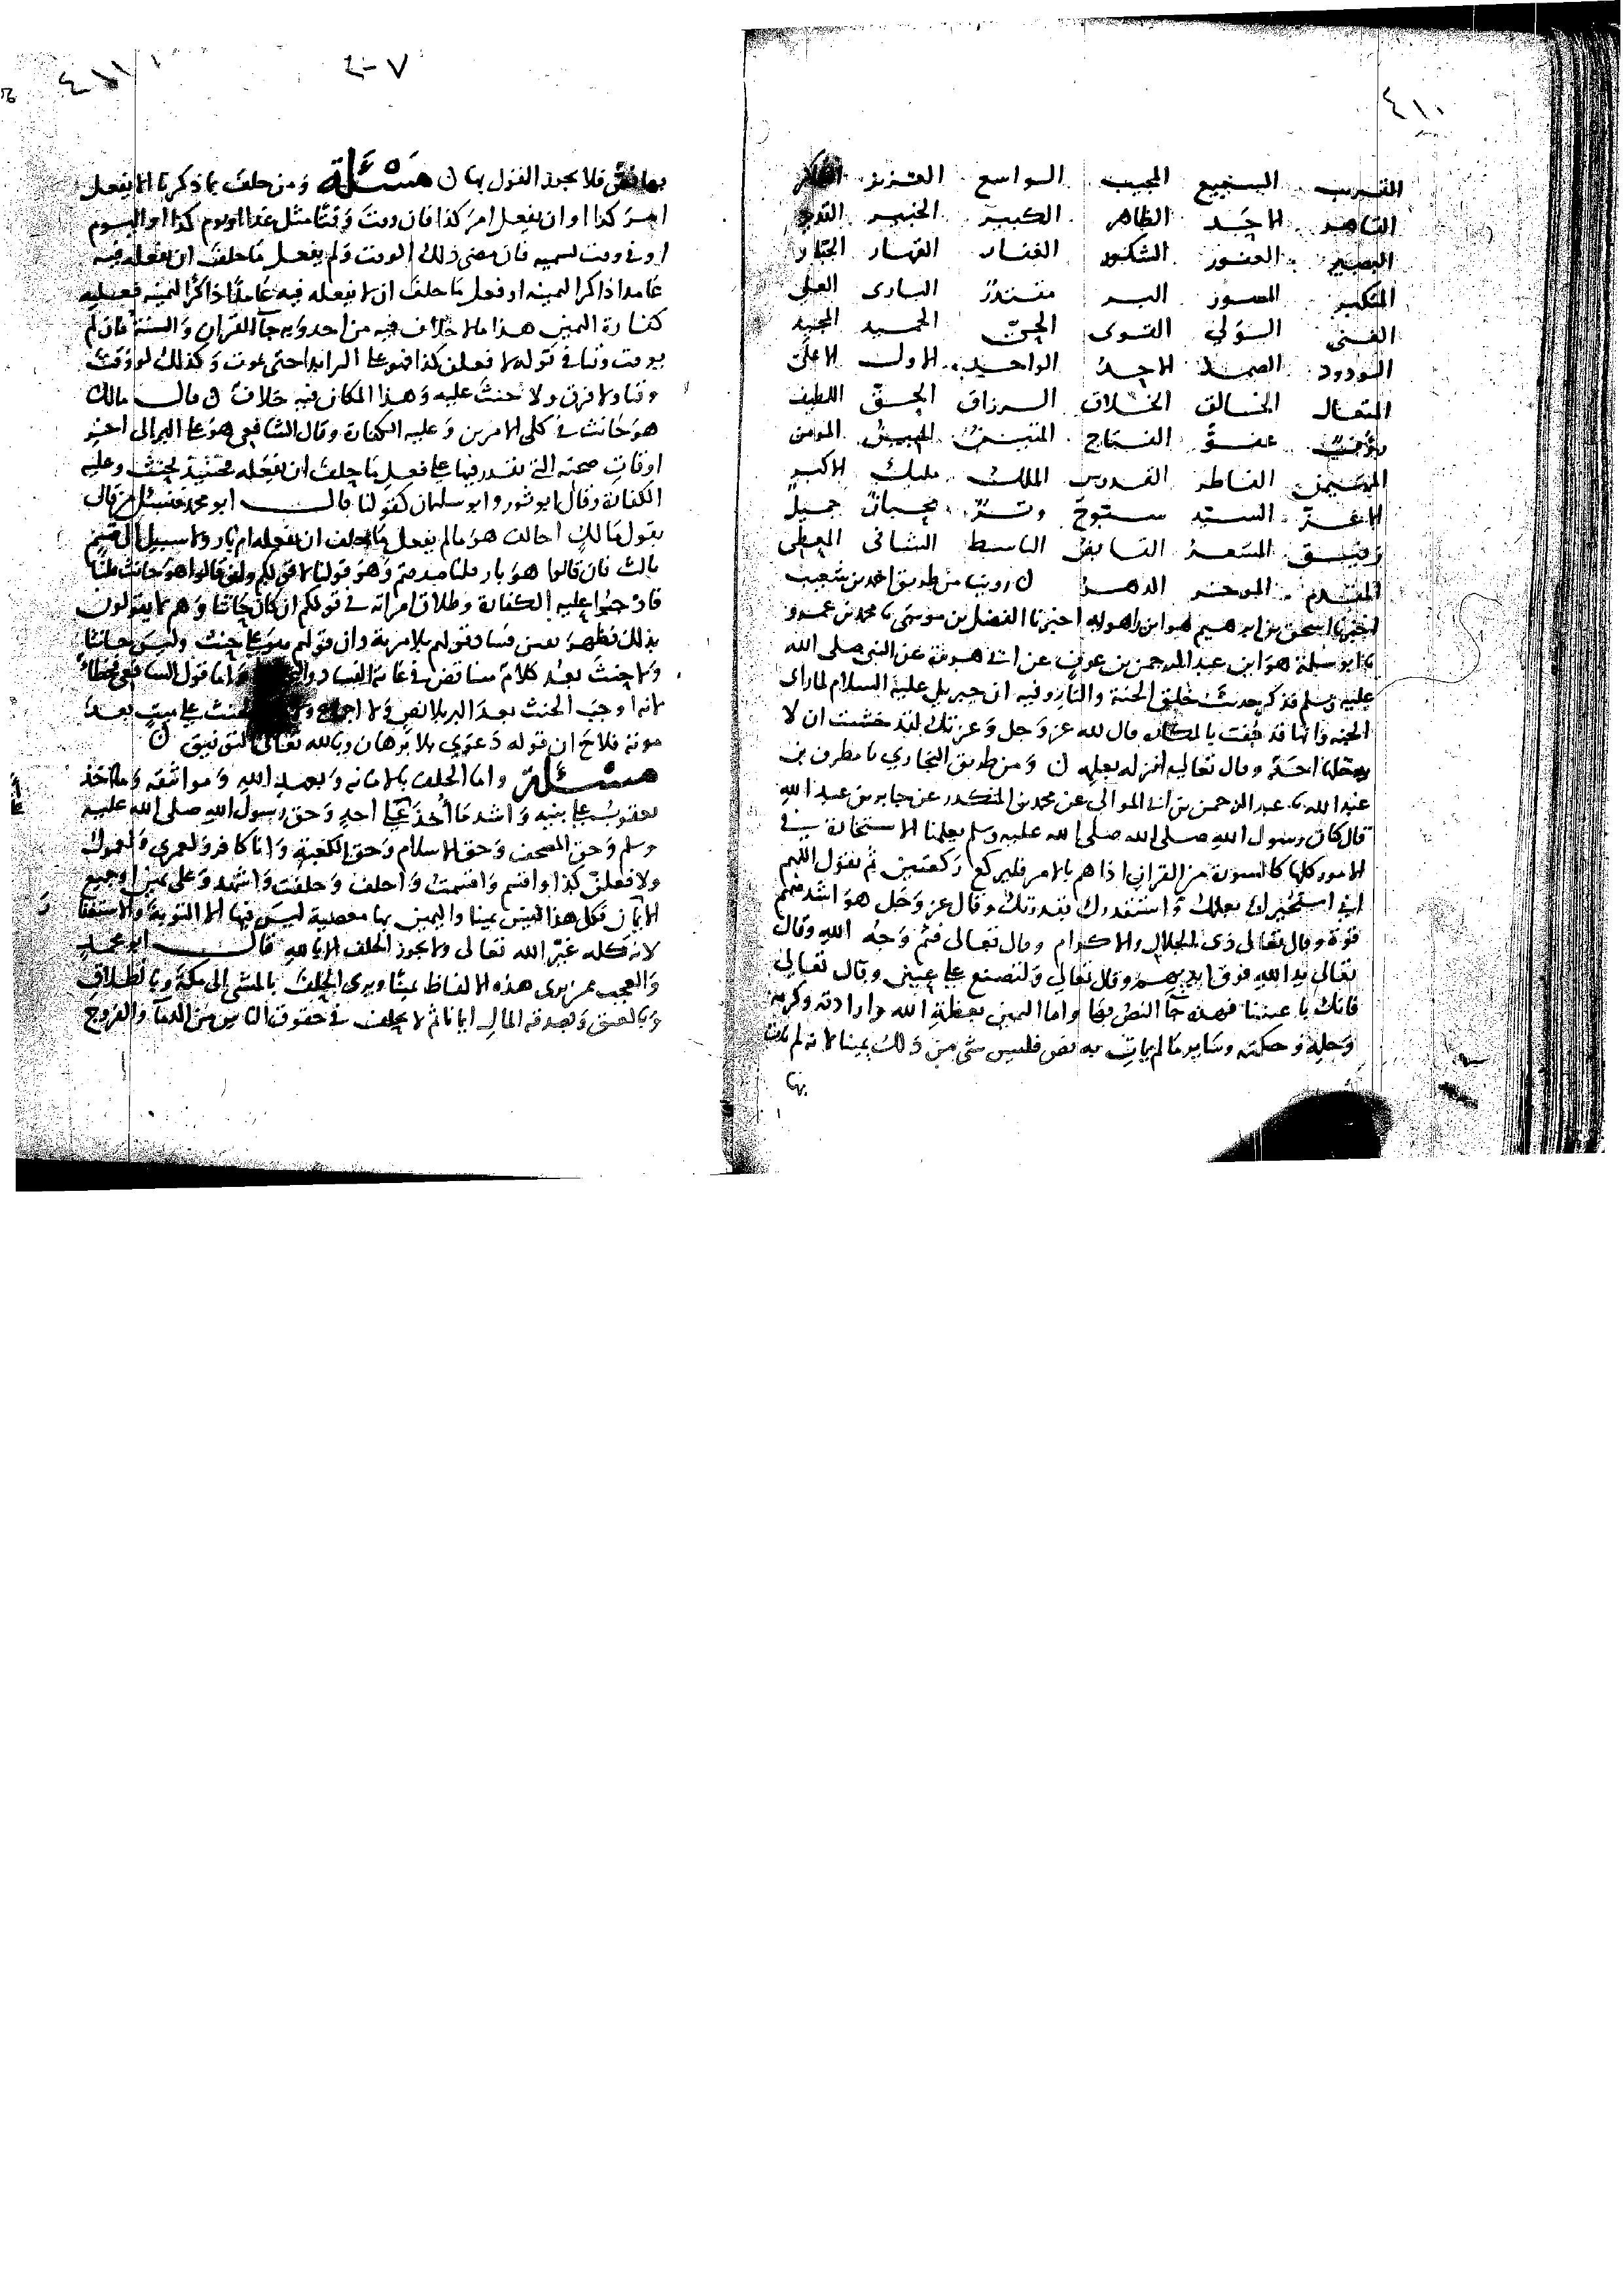 ٤١٠
القريب السميع المجيب الواسع العزيز الشاكر
القاهر الآخر الظاهر الكبير الخبير القدير
البصير الغفور الشكور الغفار القهار الجبار
المتكبر المصور البر مقتدر البارى العلى
الغنى الولى القوى الحى الحميد المجيد
الودود الصمد الاحد الواحد الاول الاعلى
المتعال الخالق الخلاق الرزاق الحق اللطيف
رؤف عفو الفتاح المتين المبين المومن
المهيمن الباطن القدوس الملك مليك الاكبر
الاعز السيد سبوح وتر محسان جميل
رفيق المسعر القابض الباسط الشافى المعطى
المقدم الموخر الدهر ن روينا من طريق احمد بن شعيب
اخبرنا اسحق بن ابرهيم هو ابن راهويه اخبرنا الفضل بن موسى نا محمد بن عمرو
نا ابو سلمة هو ابن عبد الرحمن بن عوف عن ابى هريرة عن النبى صلى الله
عليه وسلم فذكر حديث خلق الجنة والنار وفيه ان جبريل عليه السلام لما راى
الجنه وانها قد حفت بالمكاره قال لله عز وجل وعزتك لقد خشيت ان لا
يدخلها احد وقال تعالى انزله بعلمه ن ومن طريق البخارى نا مطرف بن
عبد الله نا عبد الرحمن بن ابى الموالى عن محمد بن المنكدر عن جابر بن عبد الله
قال كان رسول الله صلى الله صلى الله عليه وسلم يعلمنا الاستخارة فى
الامور كلها كالسورة من القرآن اذا هم بالامر فليركع ركعتين ثم يقول اللهم
انى استخيرك بعلمك واستقدرك بقدرتك وقال عز وجل هو اشد منهم
قوة وقال تعالى ذى الجلال والاكرام وقال تعالى فثم وجه الله وقال
تعالى يد الله فوق ايديهم وقال تعالى ولتصنع على عينى وقال تعالى
فانك باعيننا فهذه جا النص بها واما اليمين بعظمة الله وارادته وكرمه
وحلمه وحكمته وساير ما لم يات به نص فليس شى من ذلك يمينا لانه لم يات
بها
٤١١
٢٠٧
بها نص فلا يجوز القول بها ن مسئلة ومن حلف بما ذكرنا الا يفعل
امرا كذا او ان يفعل امرا كذا فان وقت وقتا مثل غدا او يوم كذا او اليوم
او فى وقت يسميه فان مضى ذلك الوقت ولم يفعل ما حلف ان يفعله فيه
عامدا ذاكرا ليمينه او فعل ما حلف ان لا يفعله فيه عامدا ذاكرا ليمينه فعليه
كفارة اليمين هذا ما لا خلاف فيه من احد وبه جا القرآن والسنة فان لم
يوقت وقتا فى قوله لافعلن كذا فهو على البر ابدا حتى يموت وكذلك لو وقت
وقتا ولا فرق ولا حنث عليه وهذا المكان فيه خلاف ن قال مالك
هو حانث فى كلى الامرين وعليه الكفارة وقال الشافعى هو على البر الى اخر
اوقات صحته التى يقدر فيها على فعل ما حلف ان يفعله فحينئذ يحنث وعليه
الكفارة وقال ابو ثور وابو سليمان كقولنا قال ابو محمد فنسئل من قال
بقول مالك احانث هو ما لم يفعل ما حلف ان يفعله ام بار ولا سبيل الى قسم
ثالث فان قالوا هو بار قلنا صدقتم وهو قولنا لا قولكم وان قالوا هو حانث قلنا
فاوجبوا عليه الكفارة وطلاق امراته فى قولكم ان كان حانثا وهم لا يقولون
بذلك فظهر يقين فساد قولهم بلا مرية وان قولهم هو على حنث وليس حانثا
ولا حنث بعد كلام متناقض فى غاية الفساد واما قول الشافعى فخطا
لانه اوجب الحنث بعد البر بلا نص ولا اجماع ولا يحنث على ميت بعد
موته فلاح ان قوله دعوى بلا برهان وبالله تعالى التوفيق ن
مسئلة واما الحلف بالامانه وبعهد الله ومواثقه وما اخذ
يعقوب على بنيه واشد ما اخذ على احد وحق رسول الله صلى الله عليه
وسلم وحق المصحف وحق الاسلام وحق الكعبة وانا كافر ولعمرى ولعمرك
ولافعلن كذا واقسم واقسمت واحلف وحلفت واشهد وعلى يمين او جميع
الايمان فكل هذا ليس يمينا واليمين بها معصية ليس فيها الا التوبة والاستغفار
لانه كله غير الله تعالى ولا يجوز الحلف الا بالله قال ابو محمد
والعجب ممن يرى هذه الالفاظ يمينا ويرى الحلف بالمشى الى مكة وبالطلاق
وبالعتق وبصدقه المال ايمانا ثم لا يحلف فى حقوق الناس من الدما والفروج